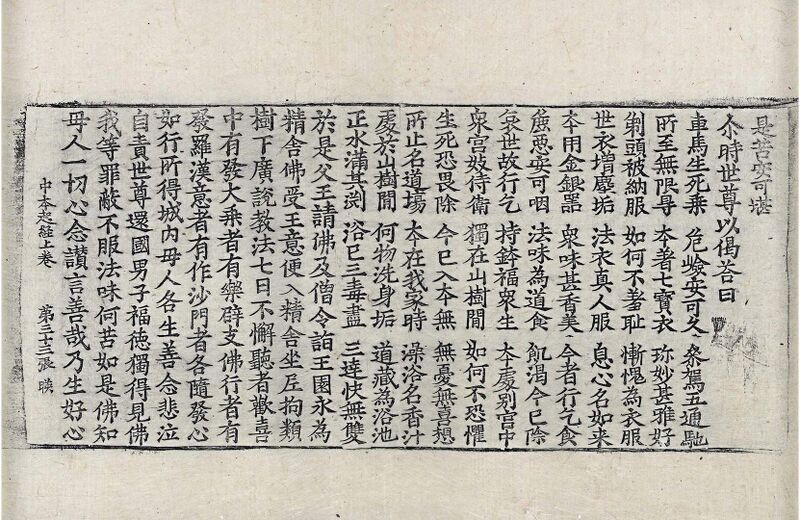 是苦安可堪
尒時世尊以偈荅曰
車馬生死乗 危嶮安可久 叅駕五通馳
所至無限㝵 夲著七寶衣 珎妙甚雅好
剃頭被納服 如何不著耻 慚愧為衣服
世衣増塵垢 法衣真人服 息心名如来
夲用金銀器 衆味甚香美 今者行乞食
麁悪安可咽 法味為道食 飢渴今已除
哀世故行乞 持鉢福衆生 夲處別宫中
衆宫妓侍衛 獨在山樹間 如何不恐懼
生死恐畏除 今已入夲無 無憂無喜想
所止名道場 夲在我家時 澡浴名香汁
處於山樹間 何物洗身垢 道藏為浴池
正水滿其渕 浴已三毒盡 三逹快無雙
於是父王請佛及僧令詣王園永為
精舎佛受王意便入精舎坐㡰拘類
樹下廣說教法七日不懈聽者歡喜
中有發大乘者有樂辟支佛行者有
發羅漢意者有作沙門者各隨發心
如行所得城内母人各生善念悲泣
自責世尊還國男子福德獨得見佛
我等罪蔽不服法味何苦如是佛知
母人一切心念讃言善哉乃生好心
中本起經上卷 第三十三張 暎